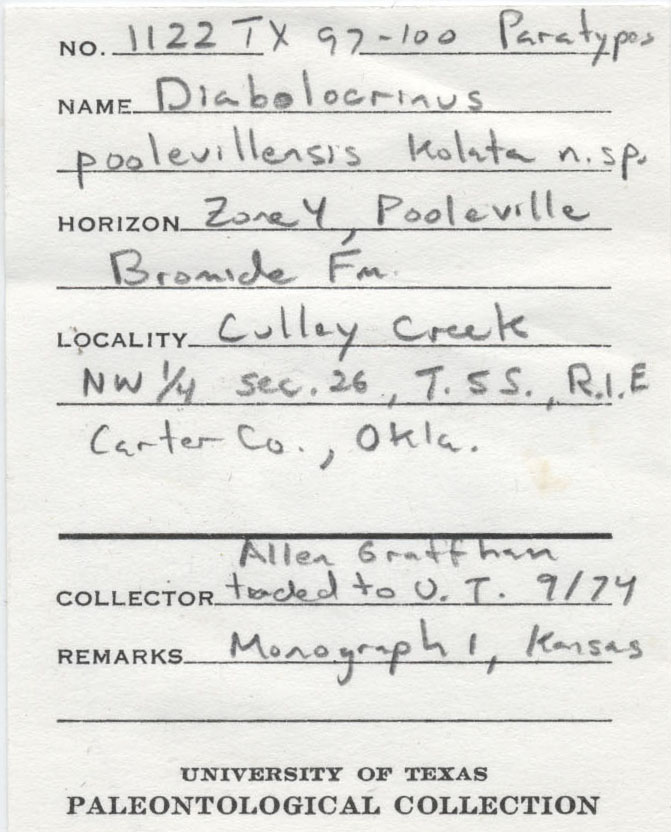 NO. 1122 TX 97-100 Paratypes
NAME Diabolocrinus
poolevillensis Kolata n.sp.
HORIZON Zone Y, Pooleville
Bromide Fm.
LOCALITY Culley Creek
NW 1/4 sec. 26, T. 5 S., R.1.E
Carter Co., Okla.
Allen Graffham
COLLECTOR traded to U.T. 9/74
REMARKS Monograph 1, Kansas
UNIVERSITY OF TEXAS
PALEONTOLOGICAL COLLECTION